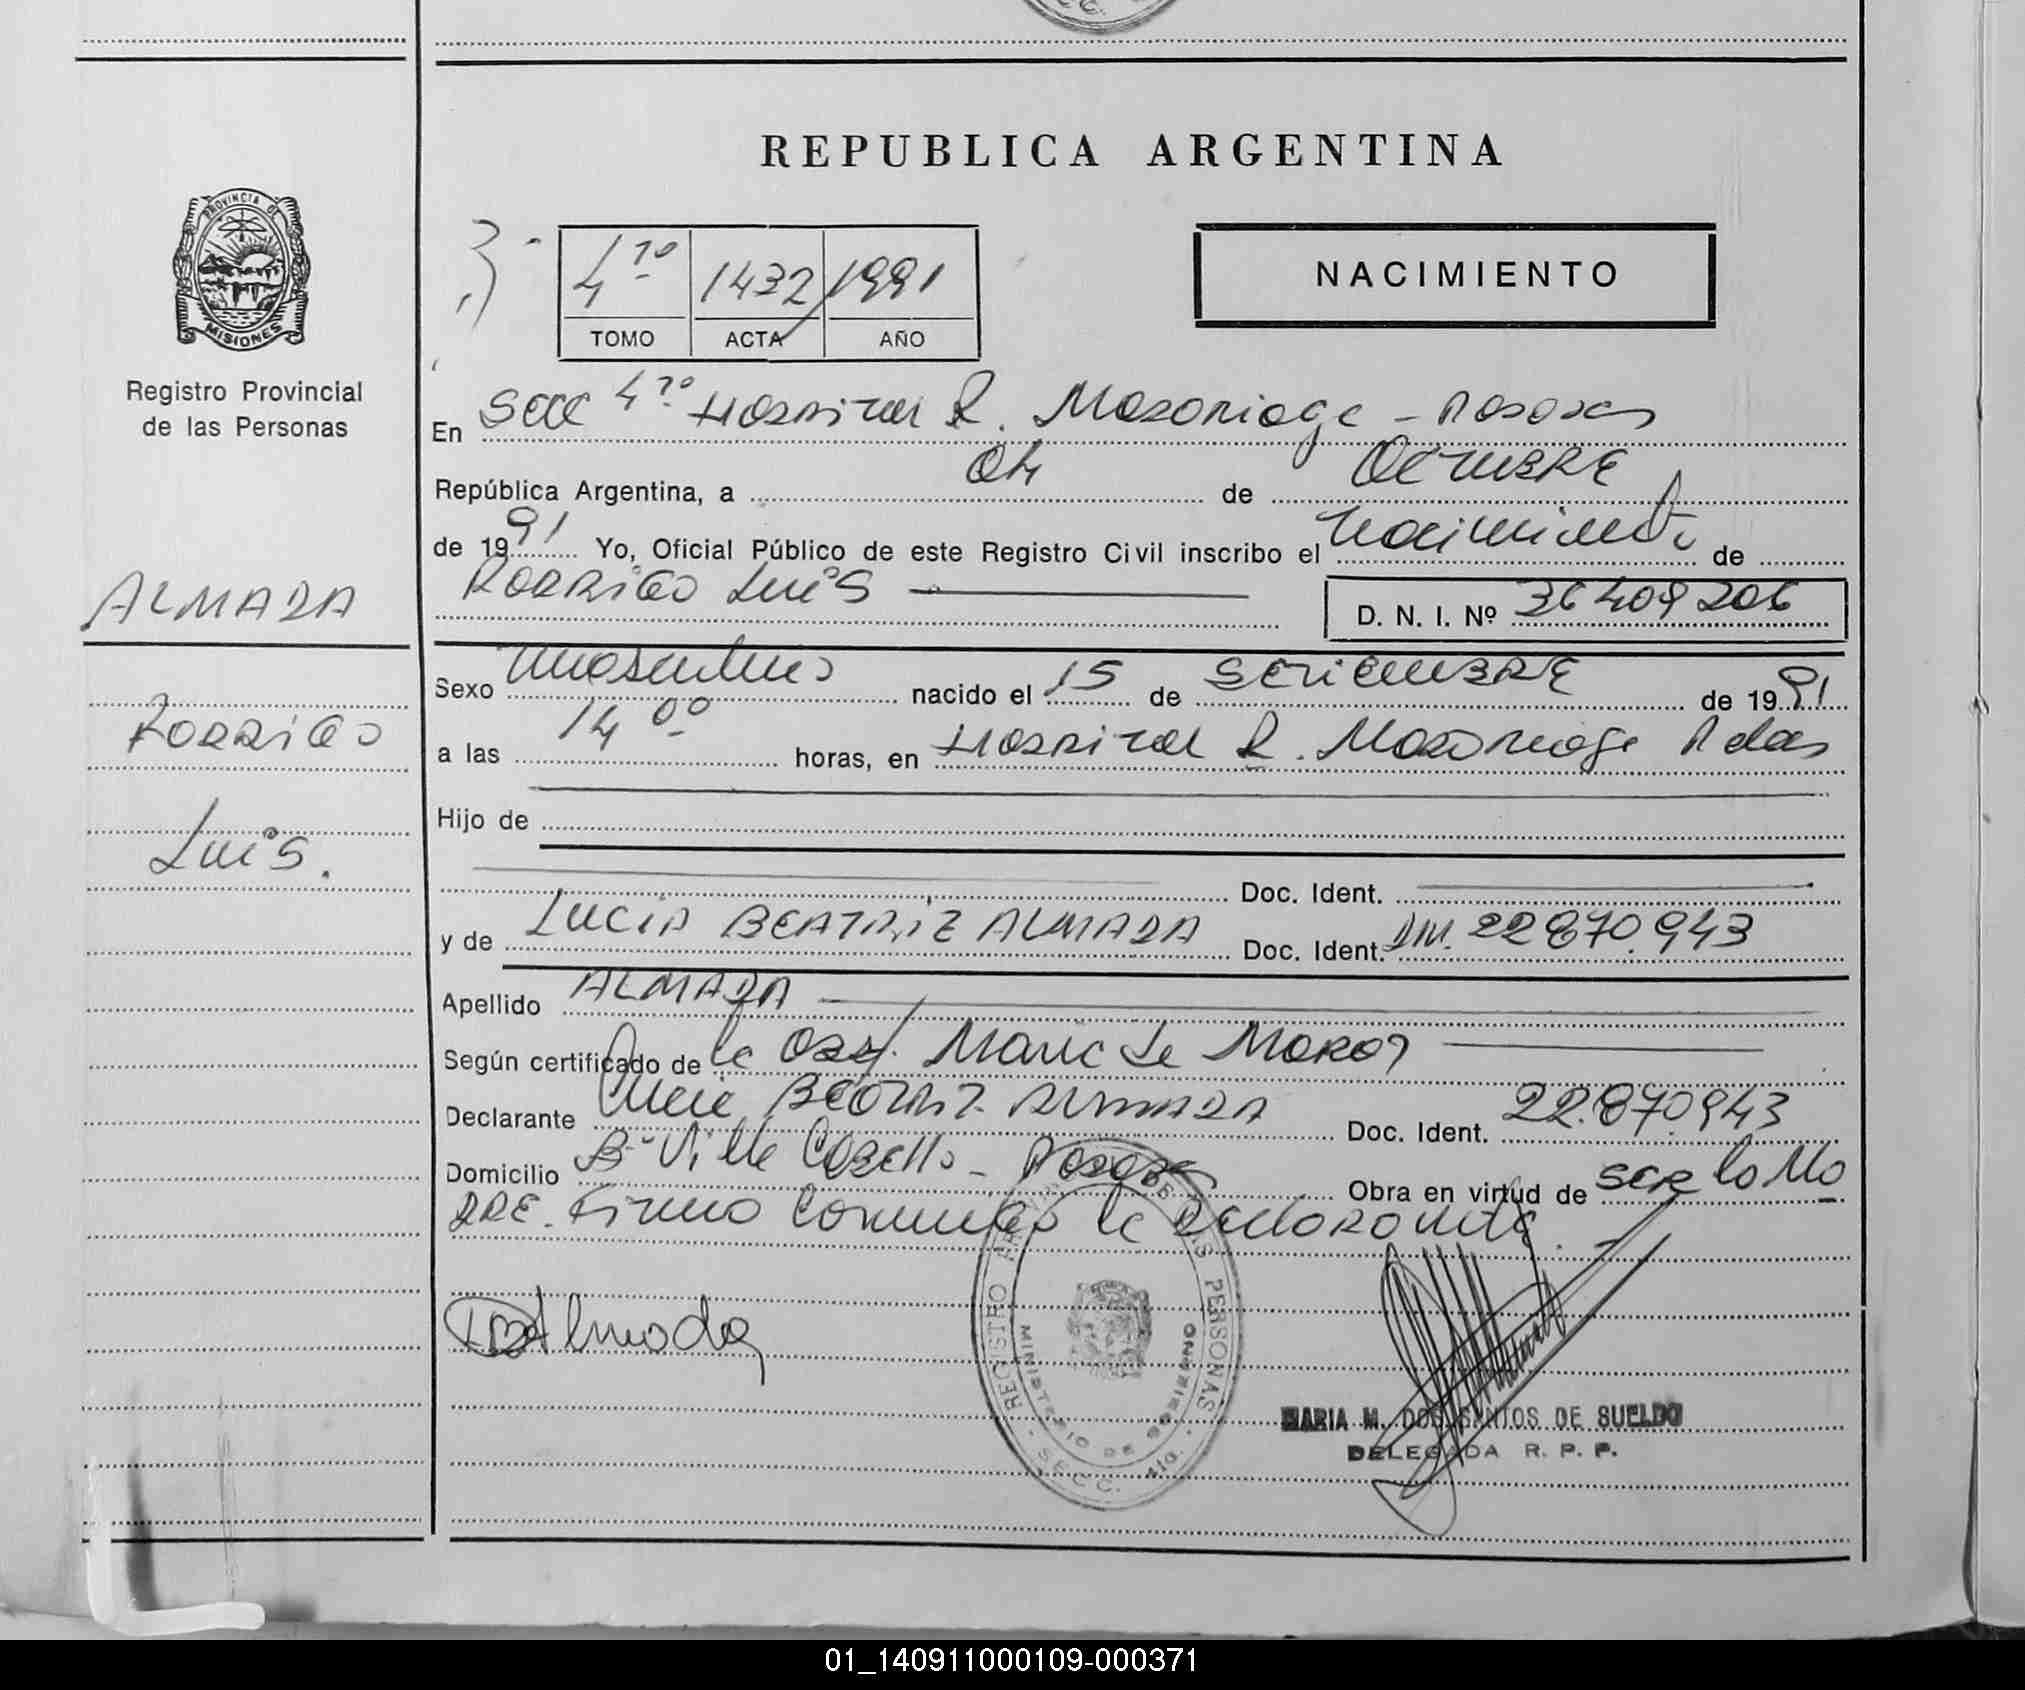 REPUBLICA ARGENTINA
PROVINCIA DE
MISIONES
Registro Provincial
de las Personas
4to 1432 1991
TOMO ACTA AÑO
NACIMIENTO
En Secc 4to Hospital R. Madariaga - Posadas
República Argentina, a 04 de Octubre
de 1991 Yo, Oficial Público de este Registro Civil inscribo el nacimiento de
Rodrigo Luis
D. N. I. Nº 36409206
ALMADA
Rodrigo
Luis.
Sexo masculino nacido el 15 de Setiembre de 1991
a las 14 00 horas, en Hospital R. Madariaga Pdas
Hijo de
Doc. Ident.
y de LUCIA BEATRIZ ALMADA Doc. Ident. DNI. 22870.943
Apellido ALMADA
Según certificado de la Obst. Maric de
Declarante Lucia Beatriz Almada Doc. Ident. 22.870.943
Domicilio Bº Villa Cabello - Posadas Obra en virtud de ser la Ma
dre. Firma conmigo la declarante.
Almada
REGISTRO PROVINCIAL DE LAS PERSONAS
MINISTERIO DE GOBIERNO
SECC. 4ta.
MARIA M. DOS SANTOS DE SUELDO
DELEGADA R. P. P.
01_140911000109-000371